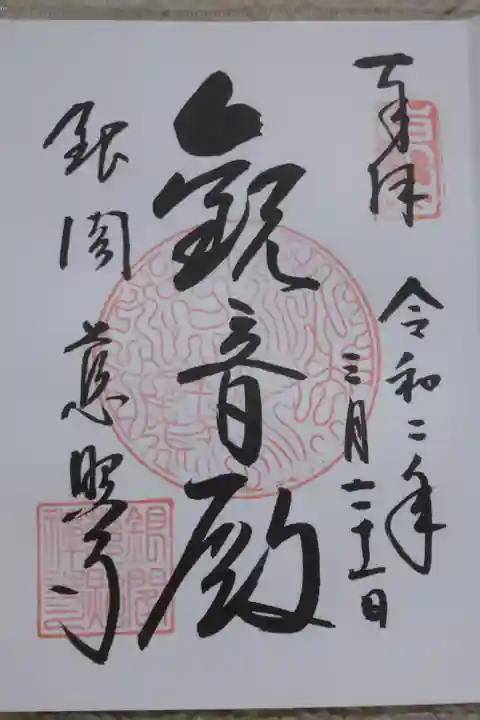 奉拝
令和二年
三月二十一日
観音殿
銀閣 慈照寺